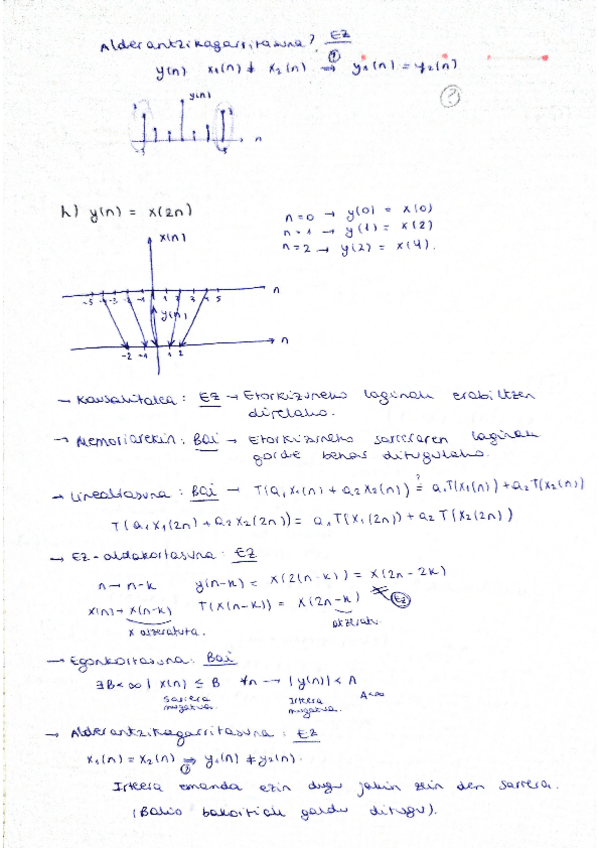 Alderantzikagarritasuna? EZ
y(n) x1(n) ≠ x2(n) ⇒ y1(n) = y2(n)
?
y(n)
n
h) y(n) = x(2n)
n=0 → y(0) = x(0)
n=1 → y(1) = x(2)
n=2 → y(2) = x(4).
x(n)
-5 -4 -3 -2 -1 1 2 3 4 5 n
y(n)
-2 -1 1 2 n
→ Kausalitatea: EZ → Etorkizuneko laginak erabiltzen
direlako.
→ Memoriarekin: Bai → Etorkizuneko sarreraren laginak
gorde behar ditugulako.
→ Linealtasuna: Bai → T(a1 x1(n) + a2 x2(n)) ?= a1 T(x1(n)) + a2 T(x2(n))
T(a1 x1(2n) + a2 x2(2n)) = a1 T(x1(2n)) + a2 T(x2(2n))
→ EZ-aldakortasuna: EZ
n → n-k y(n-k) = x(2(n-k)) = x(2n-2k)
x(n) → x(n-k) T(x(n-k)) = x(2n-k) ≠ EZ
x atzeratuta. atzeratu.
→ Egonkortasuna: Bai
∃B<∞ | x(n) ≤ B ∀n → |y(n)| < A
A<∞
Sarrera mugatua. Irteera mugatua.
→ Alderantzikagarritasuna: EZ
x1(n) = x2(n) ⇒ y1(n) ≠ y2(n).
Irteera emanda ezin dugu jakin zein den sarrera.
(Balio bakoitiak galdu ditugu).